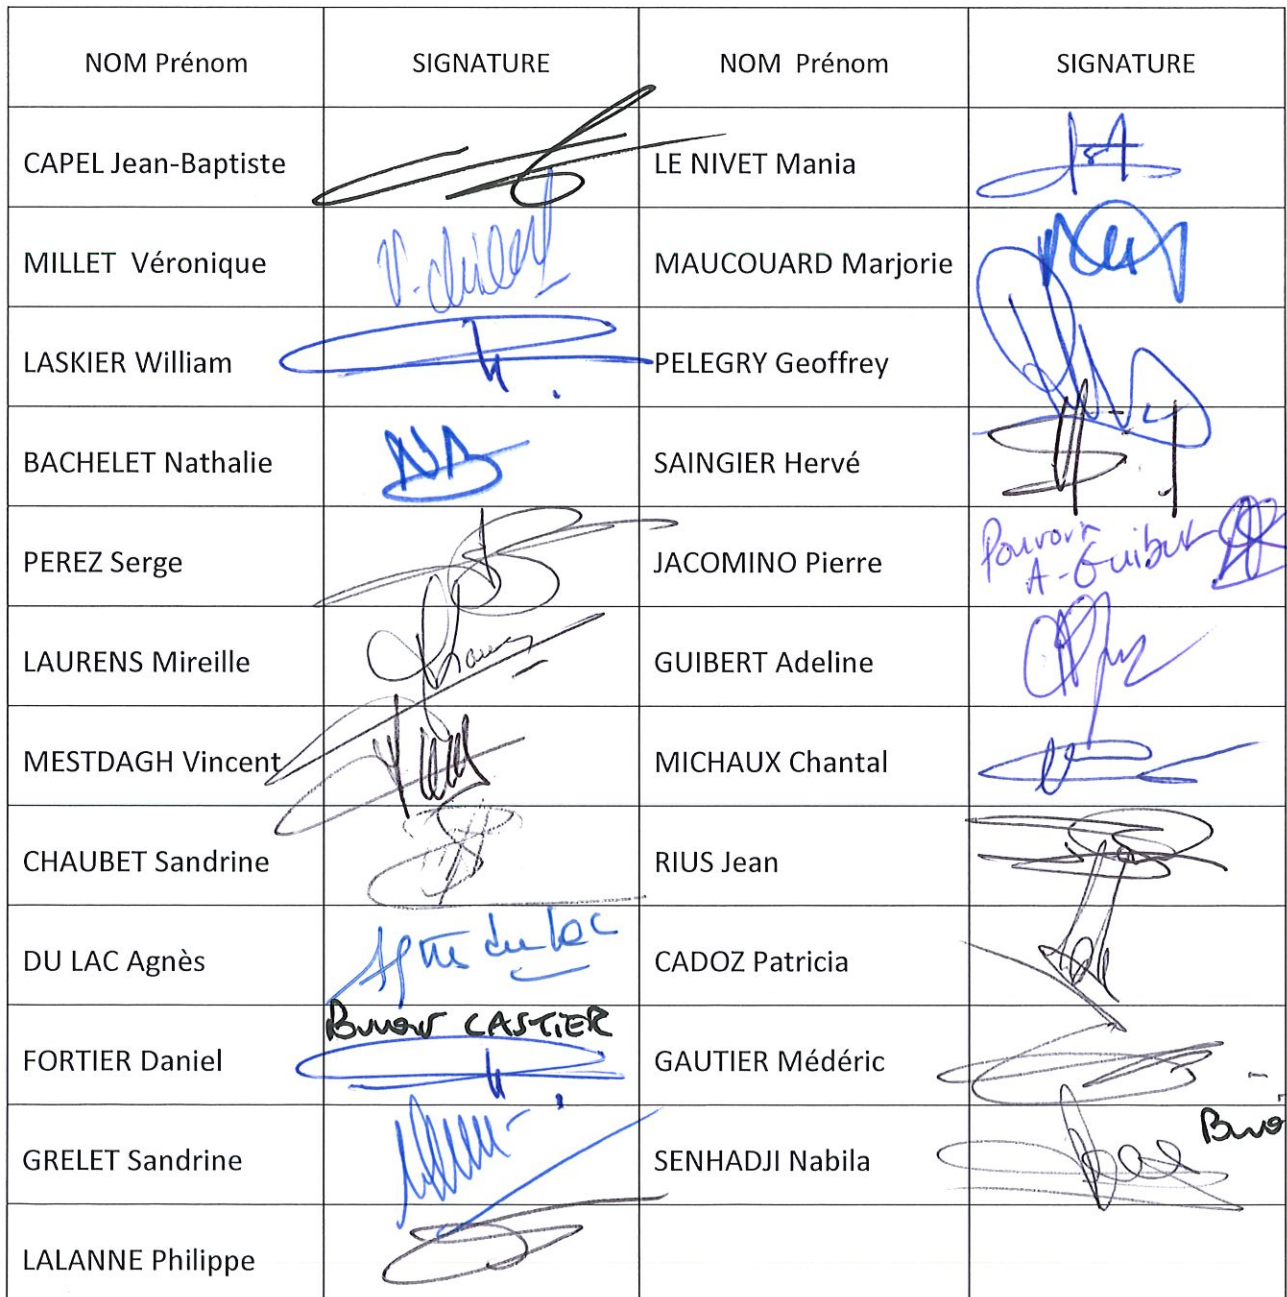 NOM Prénom SIGNATURE NOM Prénom SIGNATURE
CAPEL Jean-Baptiste LE NIVET Mania
MILLET Véronique V. Millet MAUCOUARD Marjorie
LASKIER William PELEGRY Geoffrey
BACHELET Nathalie SAINGIER Hervé
PEREZ Serge JACOMINO Pierre Pouvoir
A-Guibert
LAURENS Mireille GUIBERT Adeline
MESTDAGH Vincent MICHAUX Chantal
CHAUBET Sandrine RIUS Jean
DU LAC Agnès Agnès du Lac CADOZ Patricia
CASTIER
FORTIER Daniel GAUTIER Médéric
GRELET Sandrine SENHADJI Nabila
LALANNE Philippe